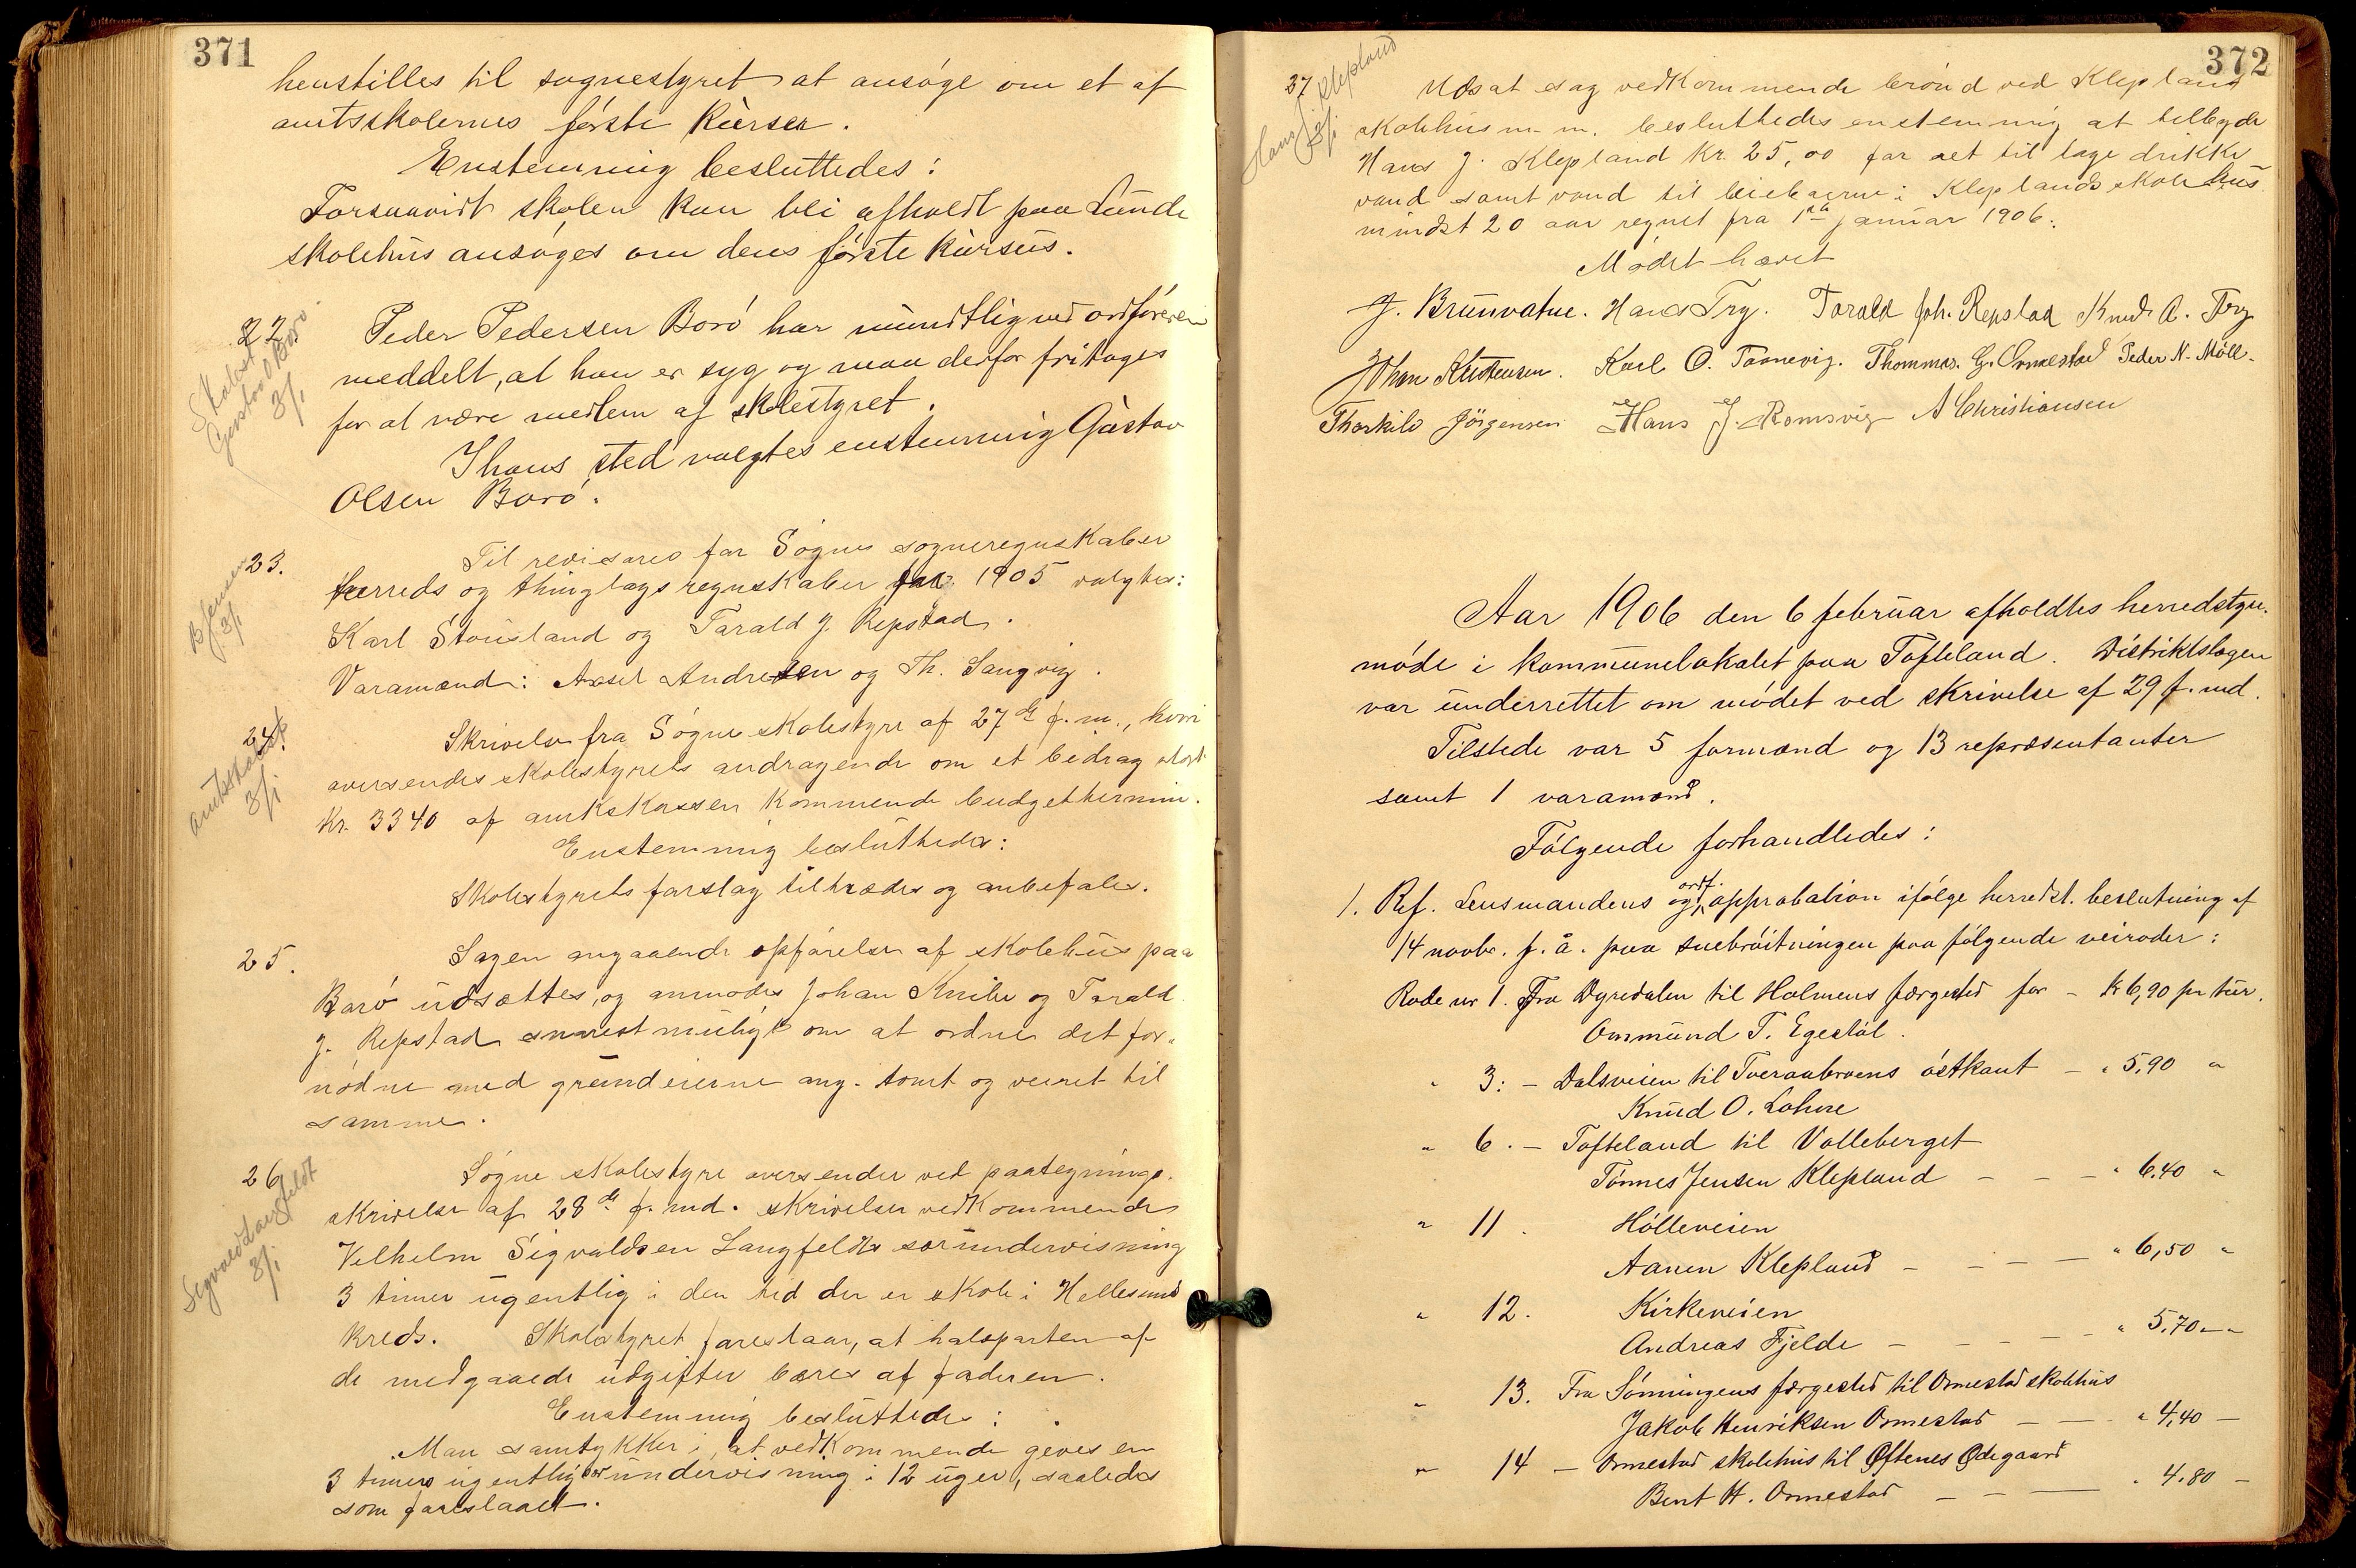 371
henstilles til sognestyret at ansøge om et af
amtsskolernes første kurser.
Enstemmig besluttedes:
Forsaavidt skolen kan bli afholdt paa Lunde
skolehus ansøges om dens første kursus.
22
Skolest
Gustav O Borø
3/1
Peder Pedersen Borø har mundtlig ved ordføreren
meddelt, at han er syg og maa derfor fritages
for at være medlem af skolestyret.
I hans sted valgtes enstemmig Gustav
Olsen Borø.
23.
3/1
Til revisorer for Søgne sogneregnskaber
herreds og thinglags regnskaber for 1905 valgtes:
Karl Stousland og Tarald J. Repstad.
Varamænd: Aksel Andresen og Th. Langvig.
24.
amtsskolest
3/1
Skrivelse fra Søgne skolestyre af 27de f. m., hvori
oversendes skolestyrets andragende om et bidrag stort
Kr. 3340 af amtskassen kommende budgettermin.
Enstemmig besluttedes:
Skolestyrets forslag tiltrædes og anbefales.
25.
Sagen angaaende opførelse af skolehus paa
Borø udsættes, og anmodes Johan Knibe og Tarald
J. Repstad snarest muligt om at ordne det for-
nødne med grundeierne ang. tomt og veiret til
samme.
26
Sigvald Langfeldt
3/1
Søgne skolestyre oversender ved paategnings-
skrivelse af 28de f. md. skrivelser vedkommende
Vilhelm Sigvaldsen Langfeldts særundervisning
3 timer ugentlig i den tid der er skole i Hellesund
kreds. Skolestyret foreslaar, at halvparten af
de medgaaede udgifter bæres af faderen.
Enstemmig besluttedes:
Man samtykker i, at vedkommende gives en
3 timers ugentlig særundervisning i 12 uger, saaledes
som foreslaaet.
372
27
Hans J. Klepland
3/1
Udsat sag vedkommende brønd ved Klepland
skolehus m. m. besluttedes enstemmig at tilbyde
Hans J. Klepland Kr. 25,00 for ret til tage drikke
vand samt vand til beboerne i Kleplands skolehus
mindst 20 aar regnet fra 1ste januar 1906.
Mødet hævet
J. Brunvatne. Hans Try. Tarald Joh. Repstad Knud A. Try
Johan Kristensen. Karl O. Taanevig. Thommas. G. Ormestad Peder N. Møll-
Thorkild Jørgensen Hans J. Romsvig A Christiansen
Aar 1906 den 6 februar afholdtes herredstyre-
møde i kommunelokalet paa Tofteland. Distriktslægen
var underrettet om mødet ved skrivelse af 29 f. md.
Tilstede var 5 formænd og 13 repræsentanter
samt 1 varamand.
Følgende forhandledes:
1. Ref. Lensmandens og ordf. approbation ifølge herredst. beslutning af
14 novbr. f. å. paa snebrøitningen paa følgende veiroder:
Rode nr 1. Fra Dyredalen til Holmens færgested for – Kr 6,90 pr tur.
Ommund T. Egestøl.
" 3: – Dalsveien til Tveraabroens østkant – " 5,90 "
Knud O. Lohne
" 6. – Tofteland til Volleberget
Tønnes Jensen Klepland – – – " 6,40 "
" 11. Hølleveien
Aanen Klepland – – – – " 6,50 "
" 12. Kirkeveien
Andreas Fjelde – – – – " 5,70 – "
" 13. Fra Lønningens færgested til Ormestad skolehus
Jakob Henriksen Ormestad – – – " 4,40 –
" 14 – Ormestad skolehus til Øftenes Ødegaard
Bent H. Ormestad – – – " 4.80 –